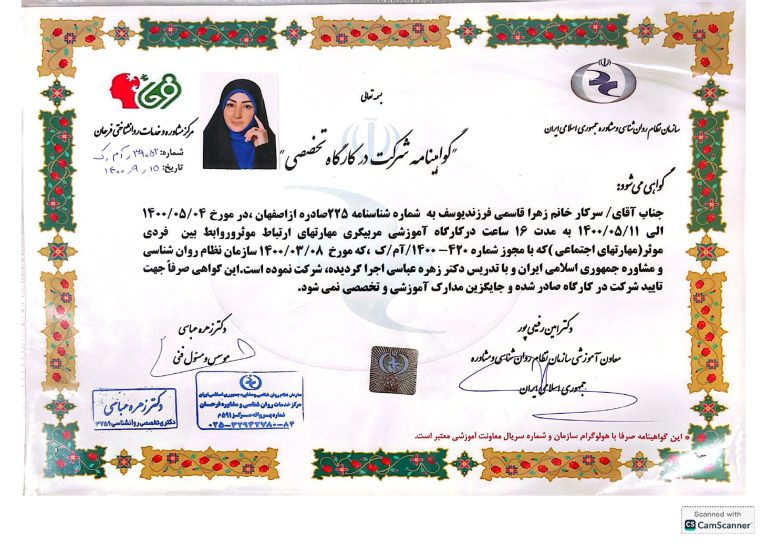 بسمه تعالی
سازمان نظام روان شناسی و مشاوره جمهوری اسلامی ایران
مرکز مشاوره و خدمات روانشناختی فرحان
شماره: ۲۹۰۵۲ر آم رک
تاریخ: ۱۴۰۰٫۹٫۱۵
"گواهینامه شرکت در کارگاه تخصصی"
گواهی می شود:
جناب آقای/ سرکار خانم زهرا قاسمی فرزندیوسف به شماره شناسنامه ۲۲۵صادره ازاصفهان ،در مورخ ۱۴۰۰/۰۵/۰۴
الی ۱۴۰۰/۰۵/۱۱ به مدت ۱۶ ساعت درکارگاه آموزشی مربیگری مهارتهای ارتباط موثروروابط بین فردی
موثر(مهارتهای اجتماعی )که با مجوز شماره ۴۲۰-۱۴۰۰/آم/ک ،که مورخ ۱۴۰۰/۰۳/۰۸ سازمان نظام روان شناسی
و مشاوره جمهوری اسلامی ایران و با تدریس دکتر زهره عباسی اجرا گردیده، شرکت نموده است.این گواهی صرفاً جهت
تایید شرکت در کارگاه صادر شده و جایگزین مدارک آموزشی و تخصصی نمی شود.
دکتر امین رفیعی پور
معاون آموزشی سازمان نظام روان شناسی و مشاوره
جمهوری اسلامی ایران
دکتر زهره عباسی
موسس و مسئول فنی
سازمان نظام روان شناسی و مشاوره جمهوری اسلامی ایران
مرکز خدمات روان شناسی و مشاوره فرحان
شماره پروانه مرکز ۵۹۱م
۰۲۵-۳۲۹۴۲۷۸۰-۸۴
دکتر زهره عباسی
دکتری تخصصی روانشناسی ۳۷۵۹
* این گواهینامه صرفا با هولوگرام سازمان و شماره سریال معاونت آموزشی معتبر است.
Scanned with
CS CamScanner